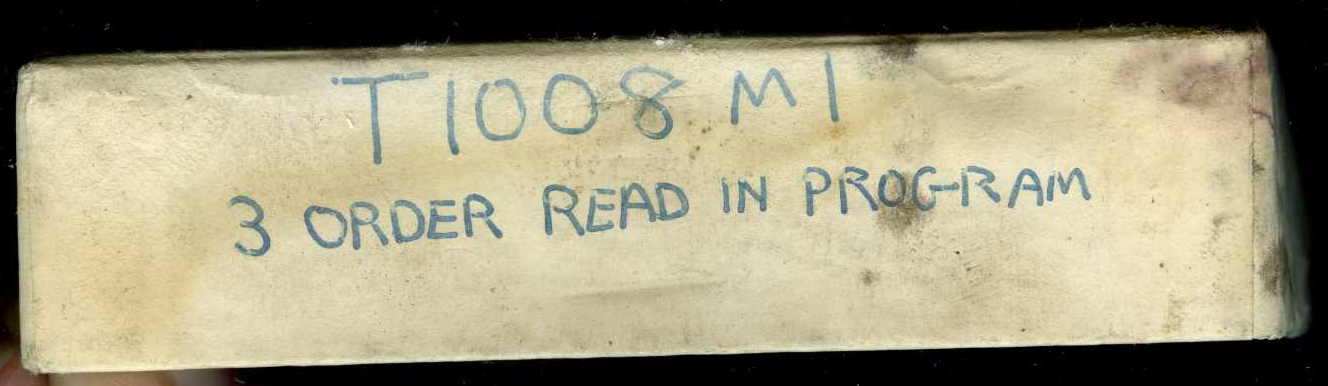 T1008 M1
3 ORDER READ IN PROG-RAM